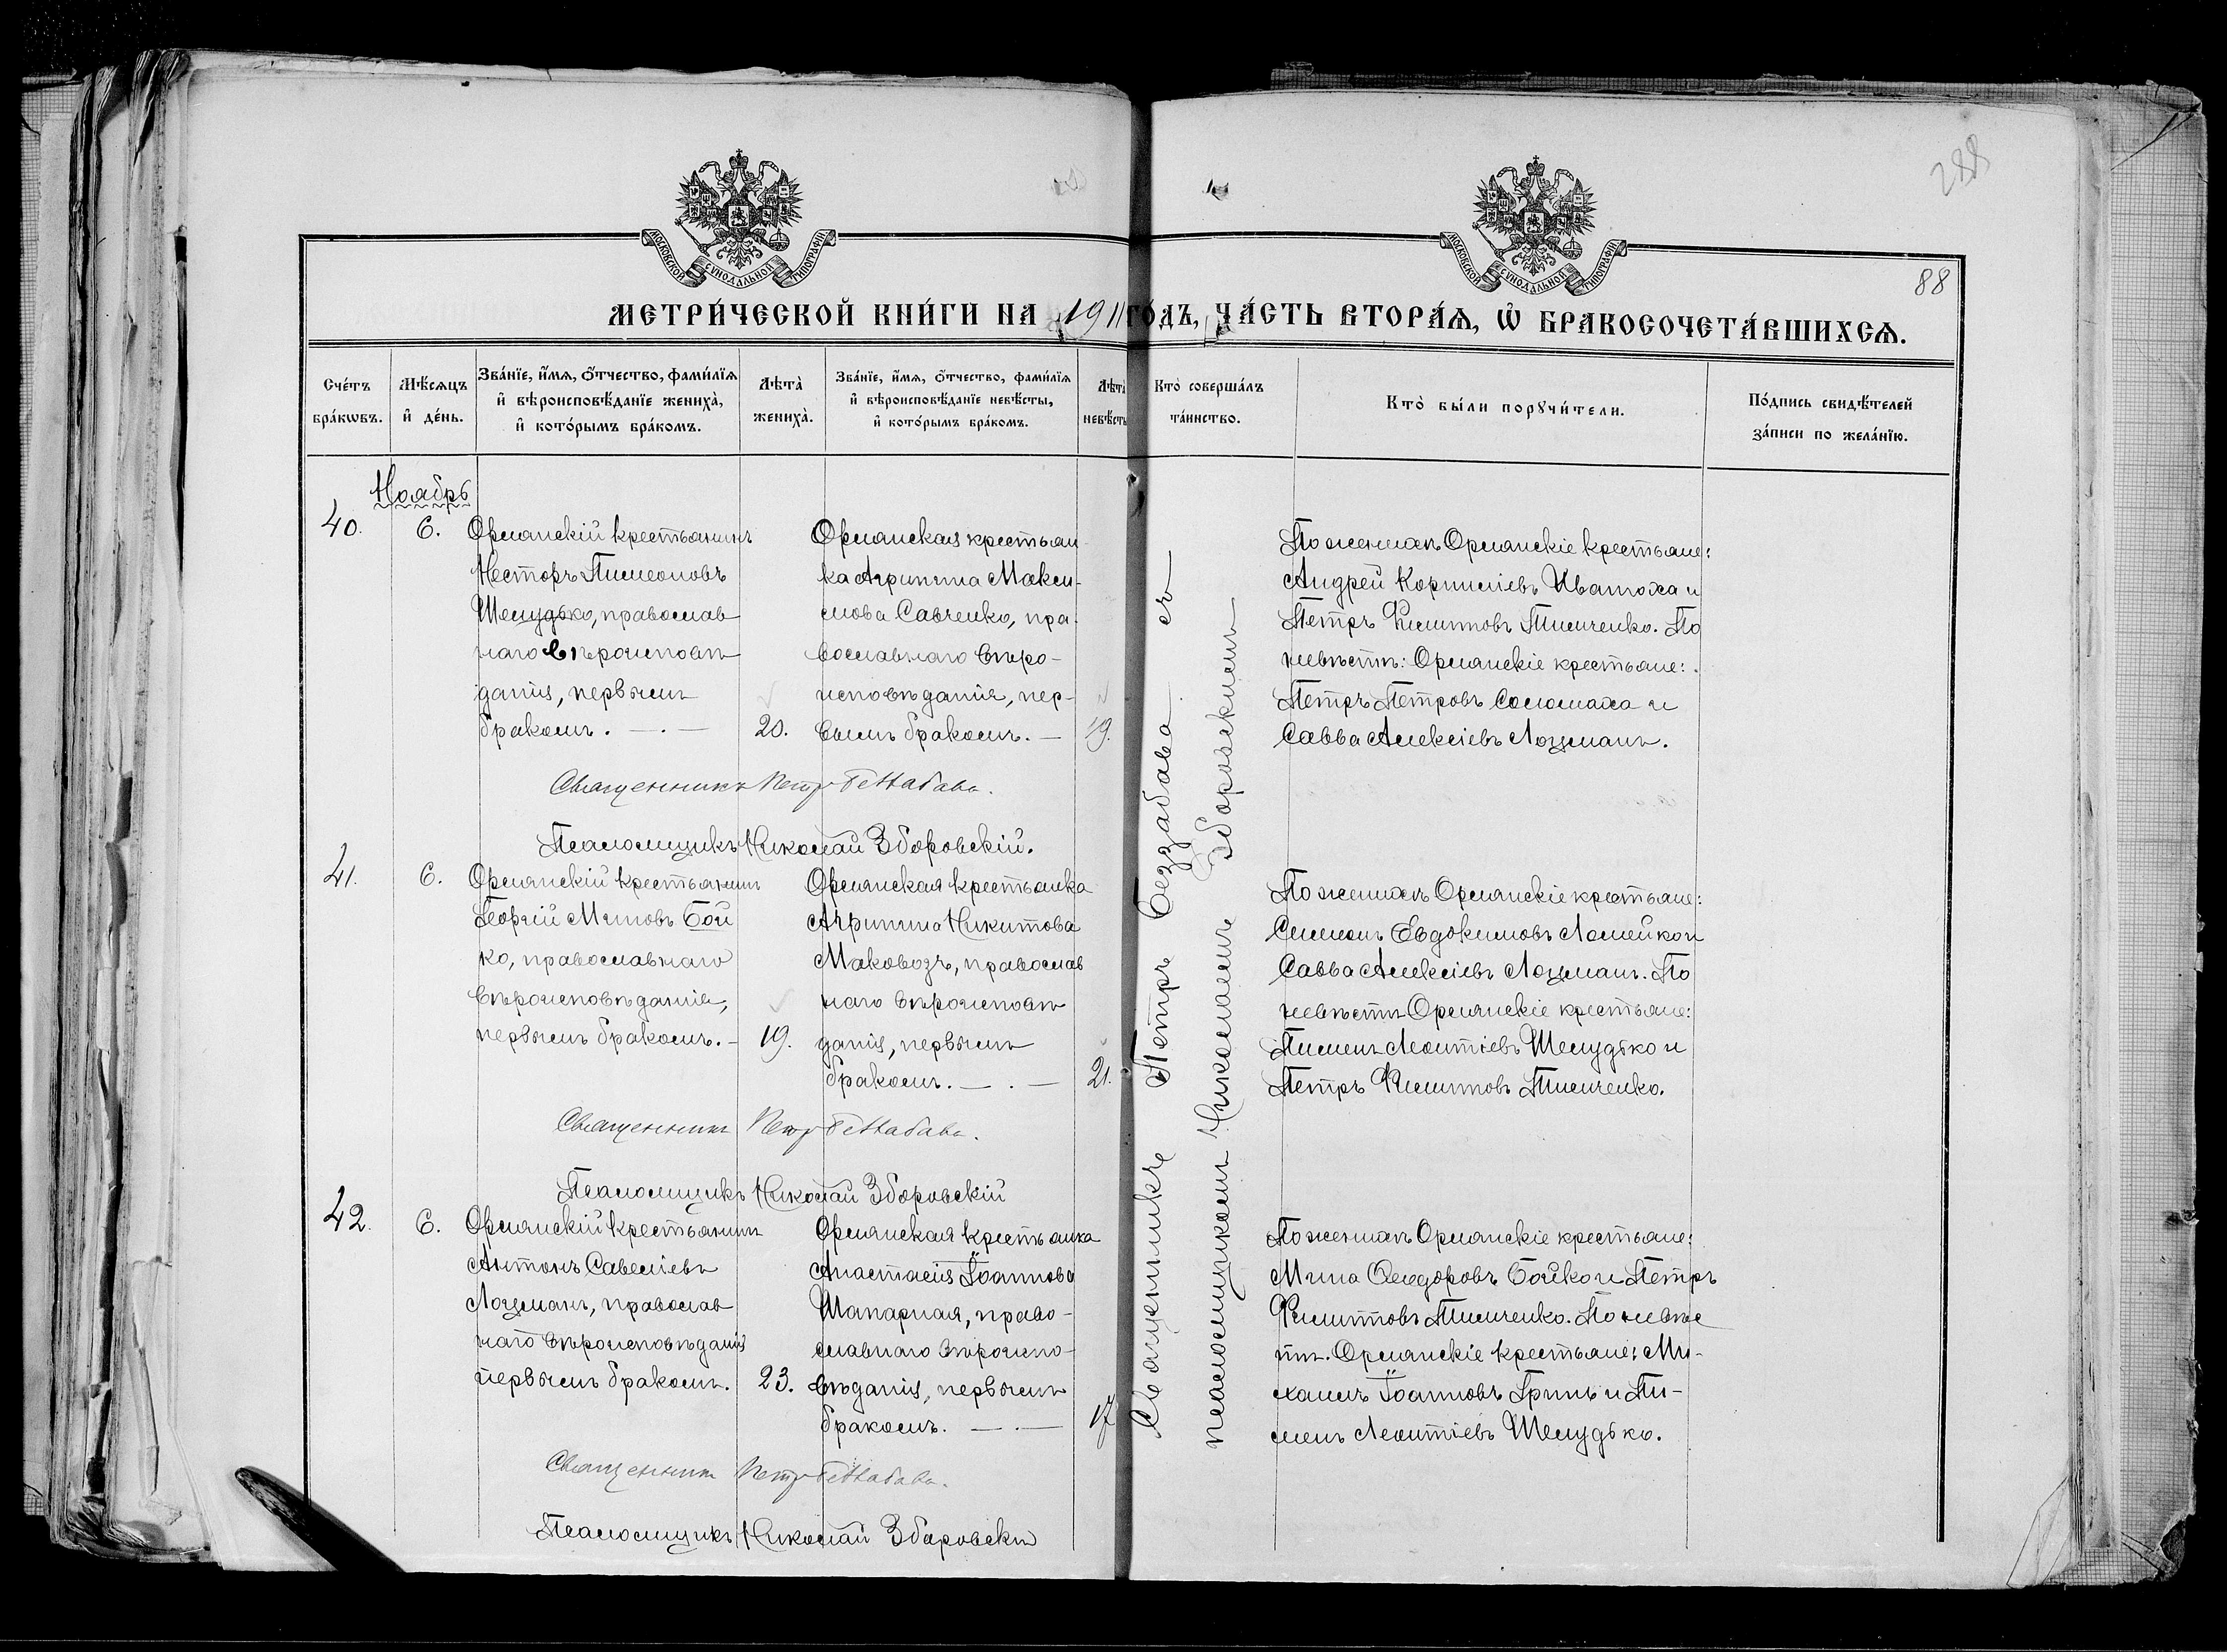 МОСКОВСКОЙ СУНОДАЛЬНОЙ ТИПОГРАФІИ
МОСКОВСКОЙ СУНОДАЛЬНОЙ ТИПОГРАФІИ
288
88
МЕТРИ́ЧЕСКОЙ КНИ́ГИ НА 1911 ГО́ДЪ, ЧА́СТЬ ВТОРА́Я, Ѡ БРАКОСОЧЕТА́ВШИХСЯ.
Сче́тъ бра́кѡвъ.
Мѣ́сяцъ и҆ де́нь.
Зва́нїе, и҆́мя, о҆́тчество, фами́лїя и҆ вѣроисповѣ́данїе жениха̀, и҆ кото́рымъ бра́комъ.
Лѣта̀ жениха̀.
Зва́нїе, и҆́мя, о҆́тчество, фами́лїя и҆ вѣроисповѣ́данїе невѣ́сты, и҆ кото́рымъ бра́комъ.
Лѣта̀ невѣ́сты
Кто̀ соверша́лъ та́инство.
Кто̀ бы́ли порꙋчи́тели.
По́дпись свидѣ́телей за́писи по жела́нїю.
Ноябрь
40.
6.
Орлянскій крестьянинъ
Несторъ Пимоновъ
Шелудько, православ
наго вѣроисповѣ
данія, первымъ
бракомъ. — . —
20.
Орлянская крестьян-
ка Агрипина Макси-
мова Савченко, пра-
вославнаго вѣро-
исповѣданія, пер-
вымъ бракомъ. —
19.
По женихѣ Орлянскіе крестьяне:
Андрей Корниліевъ Иватоха и
Петръ Филиповъ Тимченко. По
невѣстѣ: Орлянскіе крестьяне:
Петръ Петровъ Соломаха и
Савва Алексіевъ Лоцманъ.
Священникъ Петръ Беззабава.
Псаломщикъ Николай Зборовскій.
41.
6.
Орлянскій крестьянинъ
Георгій Миновъ Бой
ко, православнаго
вѣроисповѣданія,
первымъ бракомъ. —
19.
Орлянская крестьянка
Агрипина Никитова
Маковозъ, православ
наго вѣроисповѣ
данія, первымъ
бракомъ. — . —
21.
По женихѣ Орлянскіе крестьяне:
Симеонъ Евдокимовъ Ломейко и
Савва Алексіевъ Лоцманъ. По
невѣстѣ Орлянскіе крестьяне:
Пименъ Леонтіевъ Шелудько и
Петръ Филиповъ Тимченко.
Священникъ Петръ Беззабава.
Псаломщикъ Николай Зборовскій
42.
6.
Орлянскій крестьянинъ
Антонъ Савеліевъ
Лоцманъ, православ
наго вѣроисповѣданія
первымъ бракомъ.
23.
Орлянская крестьянка
Анастасія Іоаннова
Шапарная, право-
славнаго вѣроиспо-
вѣданія, первымъ
бракомъ. — . —
17
По женихѣ Орлянскіе крестьяне:
Мина Ѳеодоровъ Бойко и Петръ
Филиповъ Тимченко. По невѣс
тѣ. Орлянскіе крестьяне: Ми-
хаилъ Іоанновъ Гринь и Пи-
менъ Леонтіевъ Шелудько.
Священникъ Петръ Беззабава.
Псаломщикъ Николай Зборовскій
Священникъ Петръ Беззабава съ
псаломщикомъ Николаемъ Зборовскимъ